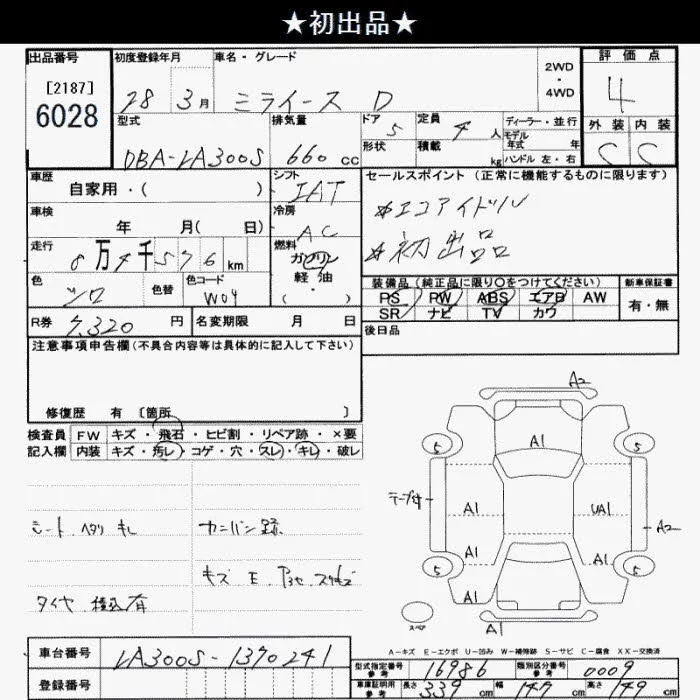 ★初出品★
出品番号 初度登録年月 車名・グレード 2WD・4WD 評価点
[2187] 6028 28 3月 ミライース D 4
型式 排気量 ドア 定員 ディーラー・並行 外装 内装
5 4人 モデル年式 年
形状 積載 kg ハンドル 左・右
DBA-LA300S 660 cc C C
車歴 シフト セールスポイント (正常に機能するものに限ります)
自家用・( ) IAT
車検 冷房 ☆エコアイドル
年 月( 日) AC ☆初出品
走行 燃料
8万4千576km ガソリン
色 色替 色コード 軽・油 装備品 (純正品に限り〇をつけてください) 新車保証書
シロ W04 ( ・ ) PS PW ABS エアB AW 有・無
SR ナビ TV カワ
R券 7,320円 名変期限 月 日 後日品
注意事項申告欄(不具合内容等は具体的に記入して下さい)
修復歴 有 〔箇所 〕
検査員 FW キズ・飛石・ヒビ割・リペア跡・×要
記入欄 内装 キズ・汚レ・コゲ・穴・スレ・キレ・破レ
A2
A1
5 5
テープ付
A1 UA1 A2
A1 A1
5 5
A1
スペア A1
シート ヘタリ キレ カンバン跡
キズ E
タイヤ 積込有
A-キズ E-エクボ U-凹み W-補修跡 S-サビ C-腐食 XX-交換済
車台番号 LA300S-1370241
登録番号
型式指定番号 参考 16986 類別区分番号 参考 0009
車庫証明用 参考 長さ 339 cm 幅 147 cm 高さ 149 cm